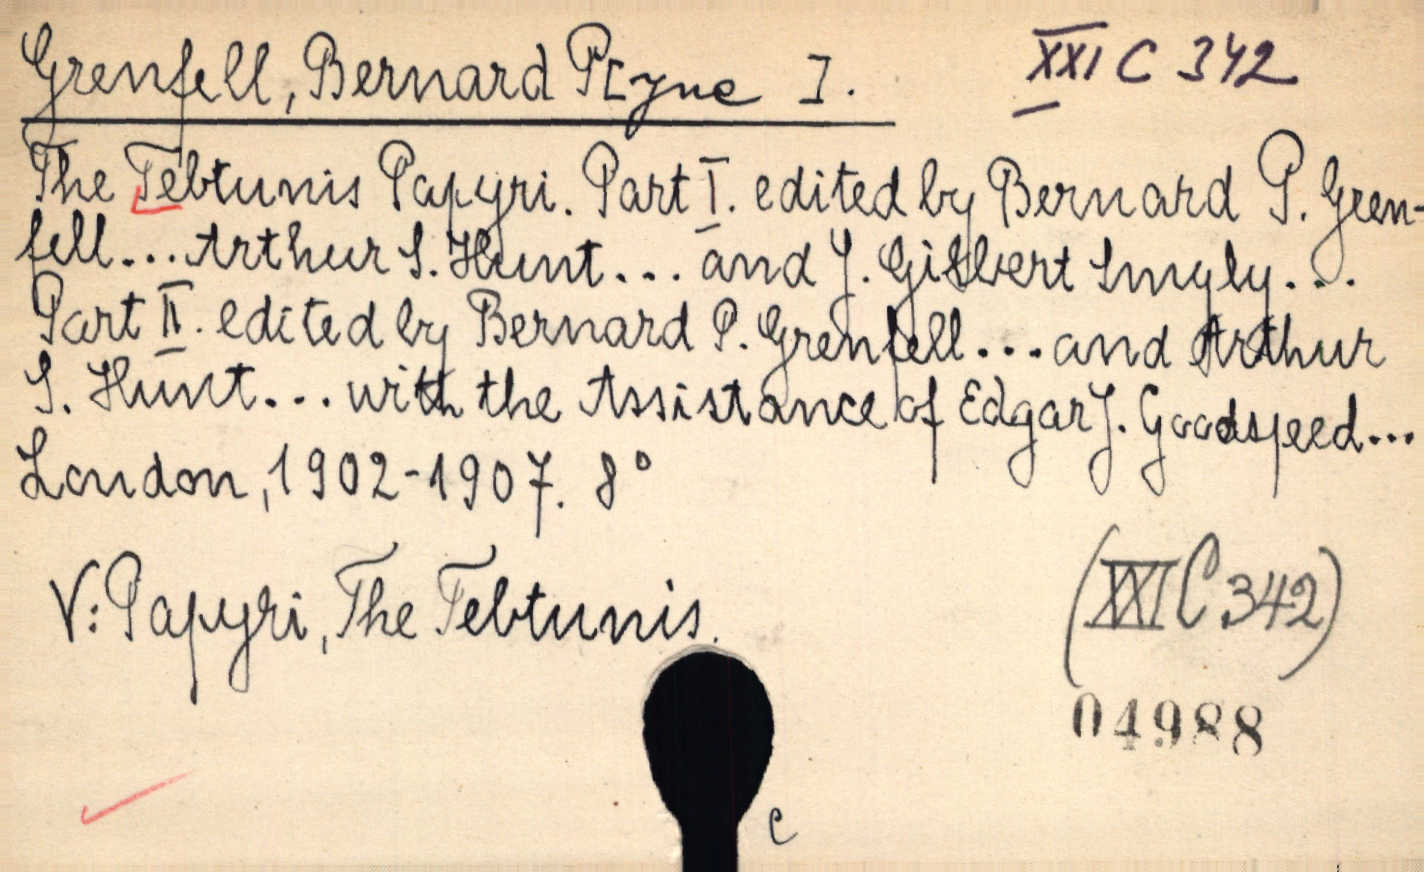 Grenfell, Bernard P[yne ]. XXI C 342
The Tebtunis Papyri. Part I. edited by Bernard P. Gren-
fell... Arthur S. Hunt... and J. Gilbert Smyly...
Part II. edited by Bernard P. Grenfell... and Arthur
S. Hunt... with the Assistance of Edgar J. Goodspeed...
London, 1902-1907. 8°
V: Papyri, The Tebtunis.
(XXI C 342)
04988
c